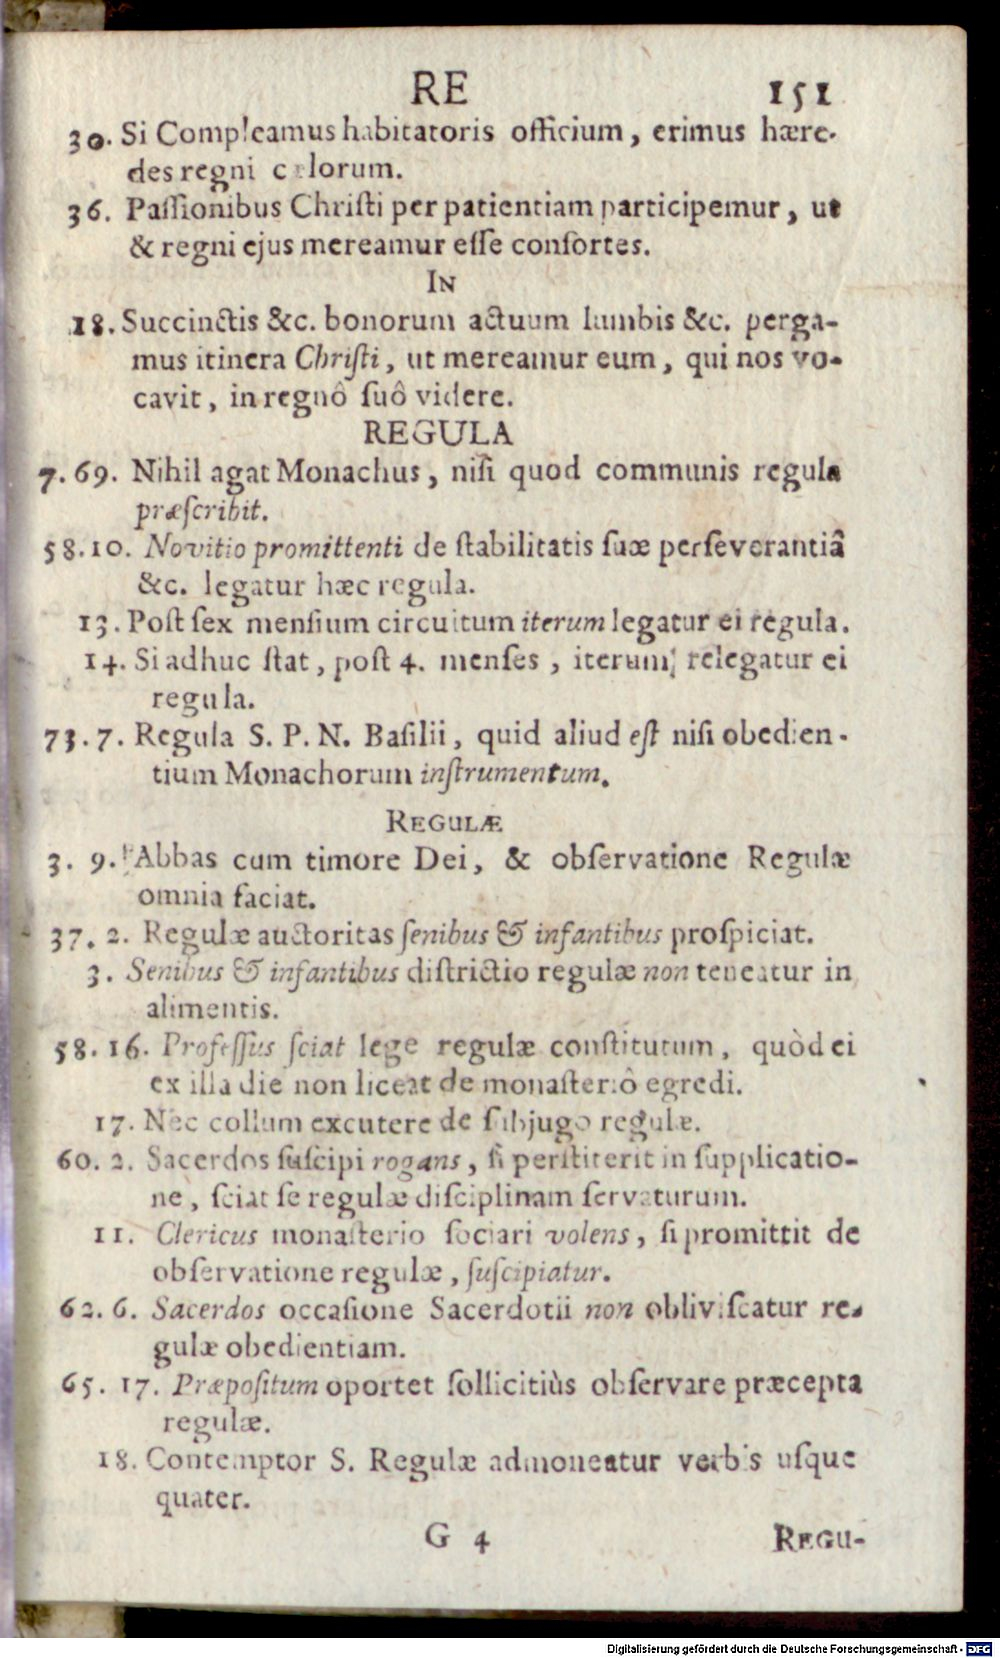 RE 151
30. Si Compleamus habitatoris officium, erimus hære-
des regni cælorum.
36. Paſſionibus Chriſti per patientiam participemur, ut
& regni ejus mereamur eſſe conſortes.
IN
18. Succinctis &c. bonorum actuum lumbis &c. perga-
mus itinera Chriſti, ut mereamur eum, qui nos vo-
cavit, in regnô ſuô videre.
REGULA
7. 69. Nihil agat Monachus, niſi quod communis regula
præſcribit.
58. 10. Novitio promittenti de ſtabilitatis ſuæ perſeverantiâ
&c. legatur hæc regula.
13. Poſt ſex menſium circuitum iterum legatur ei regula.
14. Si adhuc ſtat, poſt 4. menſes, iterum relegatur ei
regula.
73. 7. Regula S. P. N. Baſilii, quid aliud eſt niſi obedien-
tium Monachorum inſtrumentum.
REGULÆ
3. 9. Abbas cum timore Dei, & obſervatione Regulæ
omnia faciat.
37. 2. Regulæ auctoritas ſenibus & infantibus proſpiciat.
3. Senibus & infantibus diſtrictio regulæ non teneatur in
alimentis.
58. 16. Profeſſus ſciat lege regulæ conſtitutum, quòd ei
ex illa die non liceat de monaſteriô egredi.
17. Nec collum excutere de ſubjugo regulæ.
60. 2. Sacerdos ſuſcipi rogans, ſi perſtiterit in ſupplicatio-
ne, ſciat ſe regulæ diſciplinam ſervaturum.
11. Clericus monaſterio ſociari volens, ſi promittit de
obſervatione regulæ, ſuſcipiatur.
62. 6. Sacerdos occaſione Sacerdotii non obliviſcatur re-
gulæ obedientiam.
65. 17. Præpoſitum oportet ſollicitiùs obſervare præcepta
regulæ.
18. Contemptor S. Regulæ admoneatur verbis uſque
quater.
G 4 REGU-
Digitalisierung gefördert durch die Deutsche Forschungsgemeinschaft - DFG